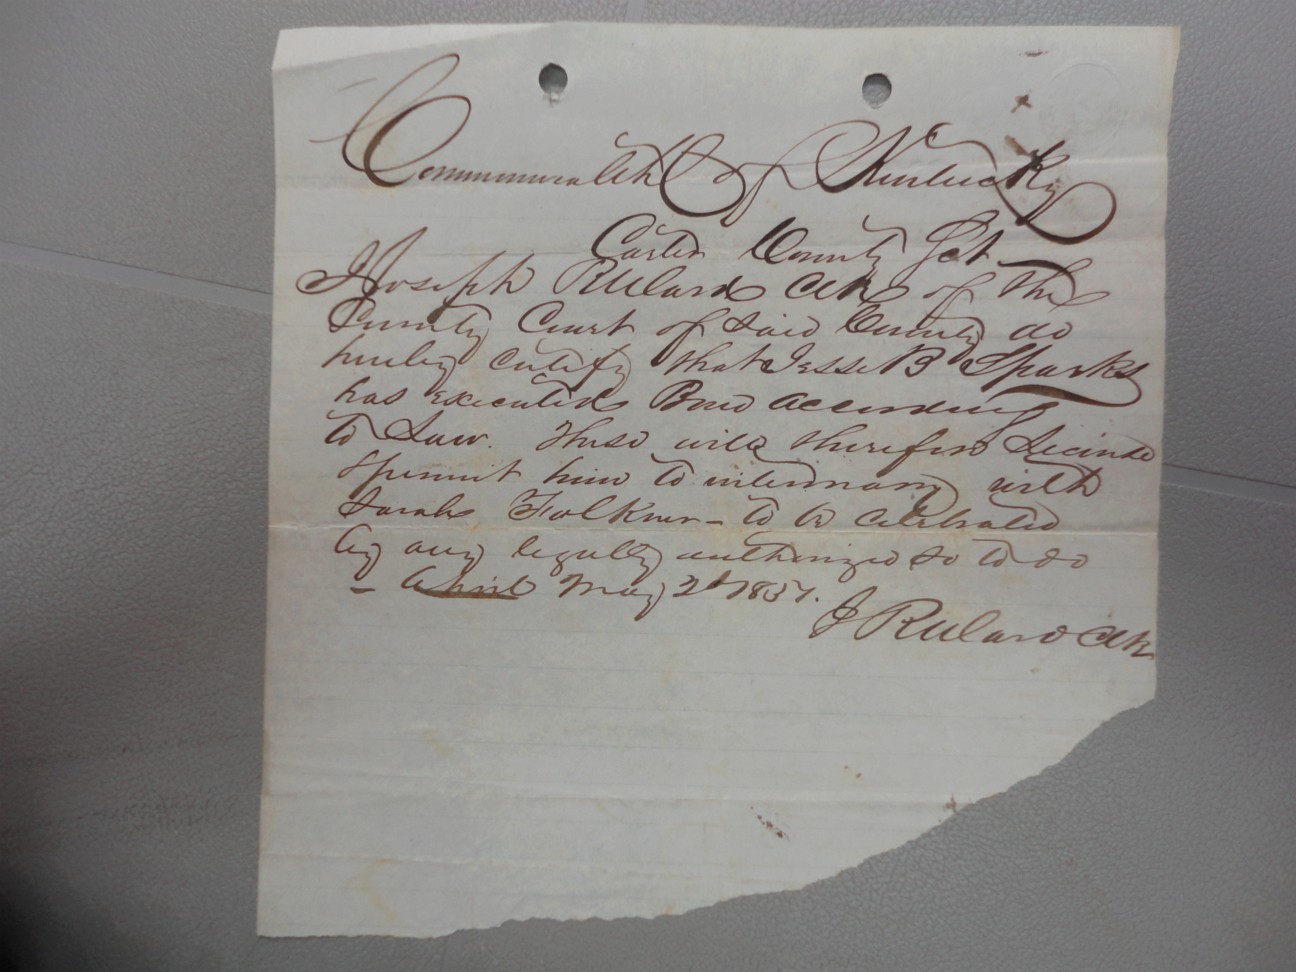 Commonwealth of Kentucky
Carter County Sct
I Joseph Clk of the
County Court of said County do
hereby certify that Jesse B Sparks
has executed Bond according
to Law. These will therefore License
& permit him to intermarry with
Sarah Folkner - to be celebrated
by any legally authorized so to do
- April May 2d 1857.
J Clk